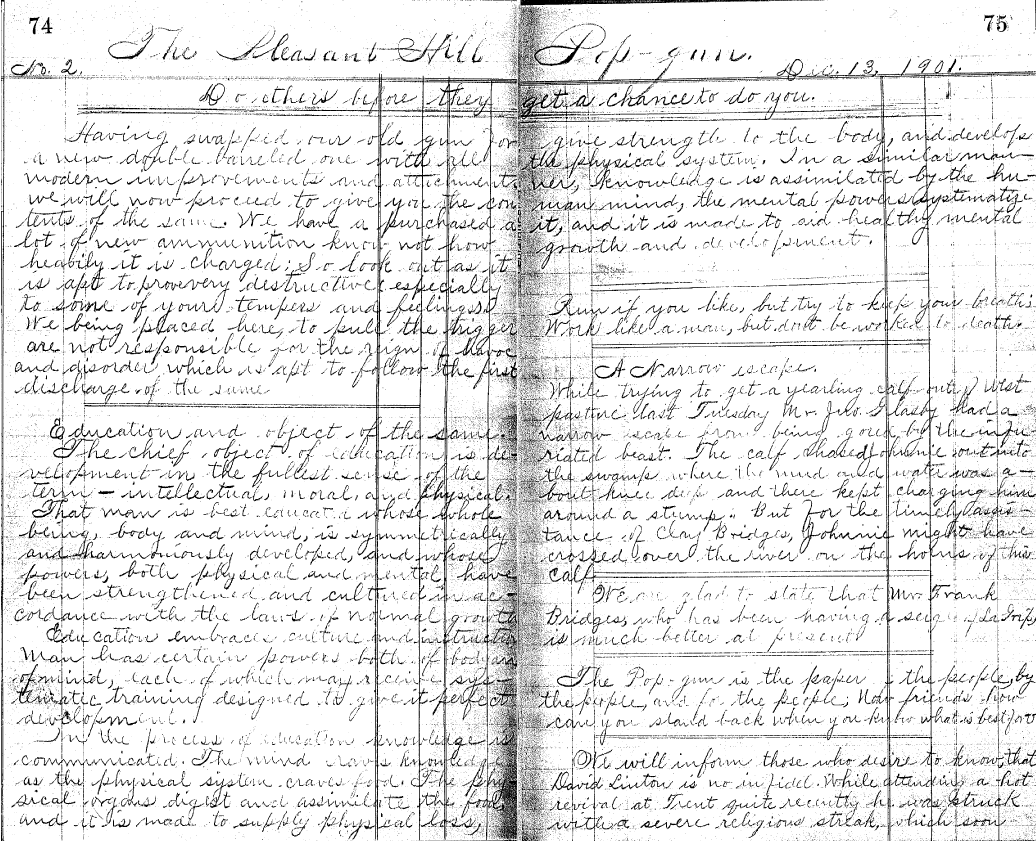 74
The Pleasant Hill Pop-gun.
75
No. 2.
Dec. 13, 1901.
Do others before they get a chance to do you.
Having swapped our old gun for
a new double barreled one with all
modern improvements and attachments
we will now proceed to give you the con
tents of the same. We have a purchased a
lot of new ammunition know not how
heavily it is charged; So look out as it
is apt to prove very destructive especially
to some of yours tempers and feelings.
We being placed here, to pull the trigger
are not responsible for the reign of havoc
and disorder which is apt to follow the first
discharge of the same
Education and object of the same.
The chief object of education is de-
velopment in the fullest sense of the
term – intellectual, moral, and physical.
That man is best educated whose whole
being, body and mind, is symmetrically
and harmoniously developed, and whose
powers, both physical and mental, have
been strengthened and cultured in ac-
cordance with the laws of normal growth
Education embraces culture and instruction
Man has certain powers both of body and
of mind, each of which may receive sys-
tematic training designed to give it perfect
development.
In the process of education knowledge is
communicated. The mind craves knowledge
as the physical system craves food. The phy-
sical organs digest and assimilate the food,
and it is made to supply physical loss,
give strength to the body, and develops
the physical system. In a similar man-
ner, knowledge is assimilated by the hu-
man mind, the mental powers systematize
it, and it is made to aid healthy mental
growth and development.
Run if you like, but try to keep your breath;
Work like a man, but don't be worked to death.
A Narrow escape.
While trying to get a yearling calf out of West
pasture last Tuesday Mr. Jno. Glasby had a
narrow escape from being gored by the infu-
riated beast. The calf chased Johnnie out into
the swamp where the mud and water was a-
bout knee deep and there kept charging him
around a stump. But for the timely assis-
tance of Clay Bridges, Johnnie might have
crossed over the river on the horns of this
calf.
We are glad to state that Mr. Frank
Bridges, who has been having a seige of La Grip,
is much better at present
The Pop-gun is the paper of the people, by
the people, and for the people, Now friends how
can you stand back when you know what is best for
We will inform those who desire to know, that
David Linton is no infidel. While attending a hot
revival at Trent quite recently he was struck
with a severe religious streak, which soon